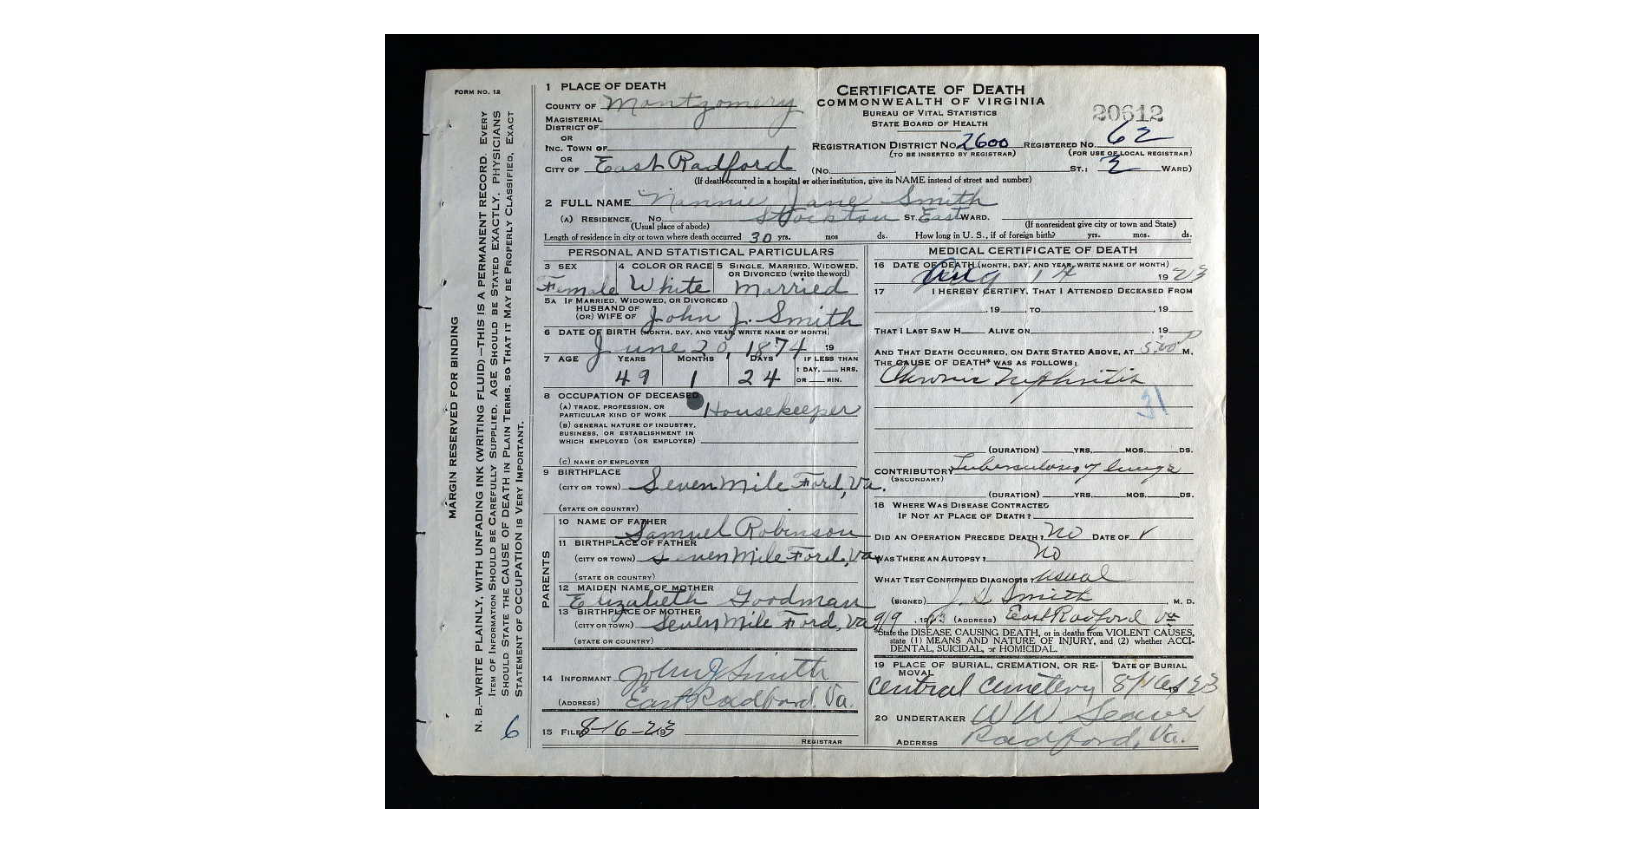 FORM NO. 12
MARGIN RESERVED FOR BINDING
N. B.—WRITE PLAINLY, WITH UNFADING INK (WRITING FLUID)—THIS IS A PERMANENT RECORD. EVERY
ITEM OF INFORMATION SHOULD BE CAREFULLY SUPPLIED. AGE SHOULD BE STATED EXACTLY. PHYSICIANS
SHOULD STATE THE CAUSE OF DEATH IN PLAIN TERMS, SO THAT IT MAY BE PROPERLY CLASSIFIED. EXACT
STATEMENT OF OCCUPATION IS VERY IMPORTANT.
6
1 PLACE OF DEATH
COUNTY OF Montgomery
MAGISTERIAL
DISTRICT OF
OR
INC. TOWN OF
OR
CITY OF East Radford
CERTIFICATE OF DEATH
COMMONWEALTH OF VIRGINIA
BUREAU OF VITAL STATISTICS
STATE BOARD OF HEALTH
20612
REGISTRATION DISTRICT NO. 2600 REGISTERED NO. 62
(TO BE INSERTED BY REGISTRAR) (FOR USE OF LOCAL REGISTRAR)
(NO. ST.; 2 WARD)
(If death occurred in a hospital or other institution, give its NAME instead of street and number)
2 FULL NAME Nannie Jane Smith
(A) RESIDENCE, No. Stockton ST. East WARD.
(Usual place of abode) (If nonresident give city or town and State)
Length of residence in city or town where death occurred 30 yrs. mos ds. How long in U. S., if of foreign birth? yrs. mos. ds.
PERSONAL AND STATISTICAL PARTICULARS
3 SEX 4 COLOR OR RACE 5 SINGLE, MARRIED, WIDOWED,
OR DIVORCED (write the word)
Female White Married
5A IF MARRIED, WIDOWED, OR DIVORCED
HUSBAND OF
(OR) WIFE OF John J. Smith
6 DATE OF BIRTH (MONTH, DAY, AND YEAR, WRITE NAME OF MONTH)
June 20, 1874 19
7 AGE YEARS MONTHS DAYS IF LESS THAN
1 DAY, HRS.
49 1 24 OR MIN.
8 OCCUPATION OF DECEASED
(A) TRADE, PROFESSION, OR
PARTICULAR KIND OF WORK Housekeeper
(B) GENERAL NATURE OF INDUSTRY,
BUSINESS, OR ESTABLISHMENT IN
WHICH EMPLOYED (OR EMPLOYER)
(C) NAME OF EMPLOYER
9 BIRTHPLACE
(CITY OR TOWN) Seven Mile Ford, Va.
(STATE OR COUNTRY)
PARENTS
10 NAME OF FATHER
Samuel Robinson
11 BIRTHPLACE OF FATHER
(CITY OR TOWN) Seven Mile Ford, Va.
(STATE OR COUNTRY)
12 MAIDEN NAME OF MOTHER
Elizabeth Goodman
13 BIRTHPLACE OF MOTHER
(CITY OR TOWN) Seven Mile Ford, Va
(STATE OR COUNTRY)
14 INFORMANT John J Smith
(ADDRESS) East Radford. Va.
15 FILED 8-16-23
REGISTRAR
MEDICAL CERTIFICATE OF DEATH
16 DATE OF DEATH (MONTH, DAY, AND YEAR, WRITE NAME OF MONTH)
Aug 14 1923
17 I HEREBY CERTIFY, THAT I ATTENDED DECEASED FROM
, 19 , TO , 19
THAT I LAST SAW H ALIVE ON , 19
AND THAT DEATH OCCURRED, ON DATE STATED ABOVE, AT 5:00 P M.
THE CAUSE OF DEATH* WAS AS FOLLOWS:
Chronic Nephritis
31
(DURATION) YRS. MOS. DS.
CONTRIBUTORY Tuberculosis of lungs
(SECONDARY)
(DURATION) YRS. MOS. DS.
18 WHERE WAS DISEASE CONTRACTED
IF NOT AT PLACE OF DEATH?
DID AN OPERATION PRECEDE DEATH? No DATE OF
WAS THERE AN AUTOPSY? No
WHAT TEST CONFIRMED DIAGNOSIS? usual
(SIGNED) J. S. Smith M. D.
9/9, 1923 (ADDRESS) East Radford Va
*State the DISEASE CAUSING DEATH, or in deaths from VIOLENT CAUSES,
state (1) MEANS AND NATURE OF INJURY, and (2) whether ACCI-
DENTAL, SUICIDAL, or HOMICIDAL.
19 PLACE OF BURIAL, CREMATION, OR RE- DATE OF BURIAL
MOVAL
Central Cemetery 8/16, 23
20 UNDERTAKER W W Seaver
ADDRESS Radford, Va.